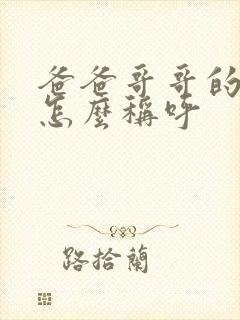 爸爸哥哥的
怎麼稱呼
路拾蘭